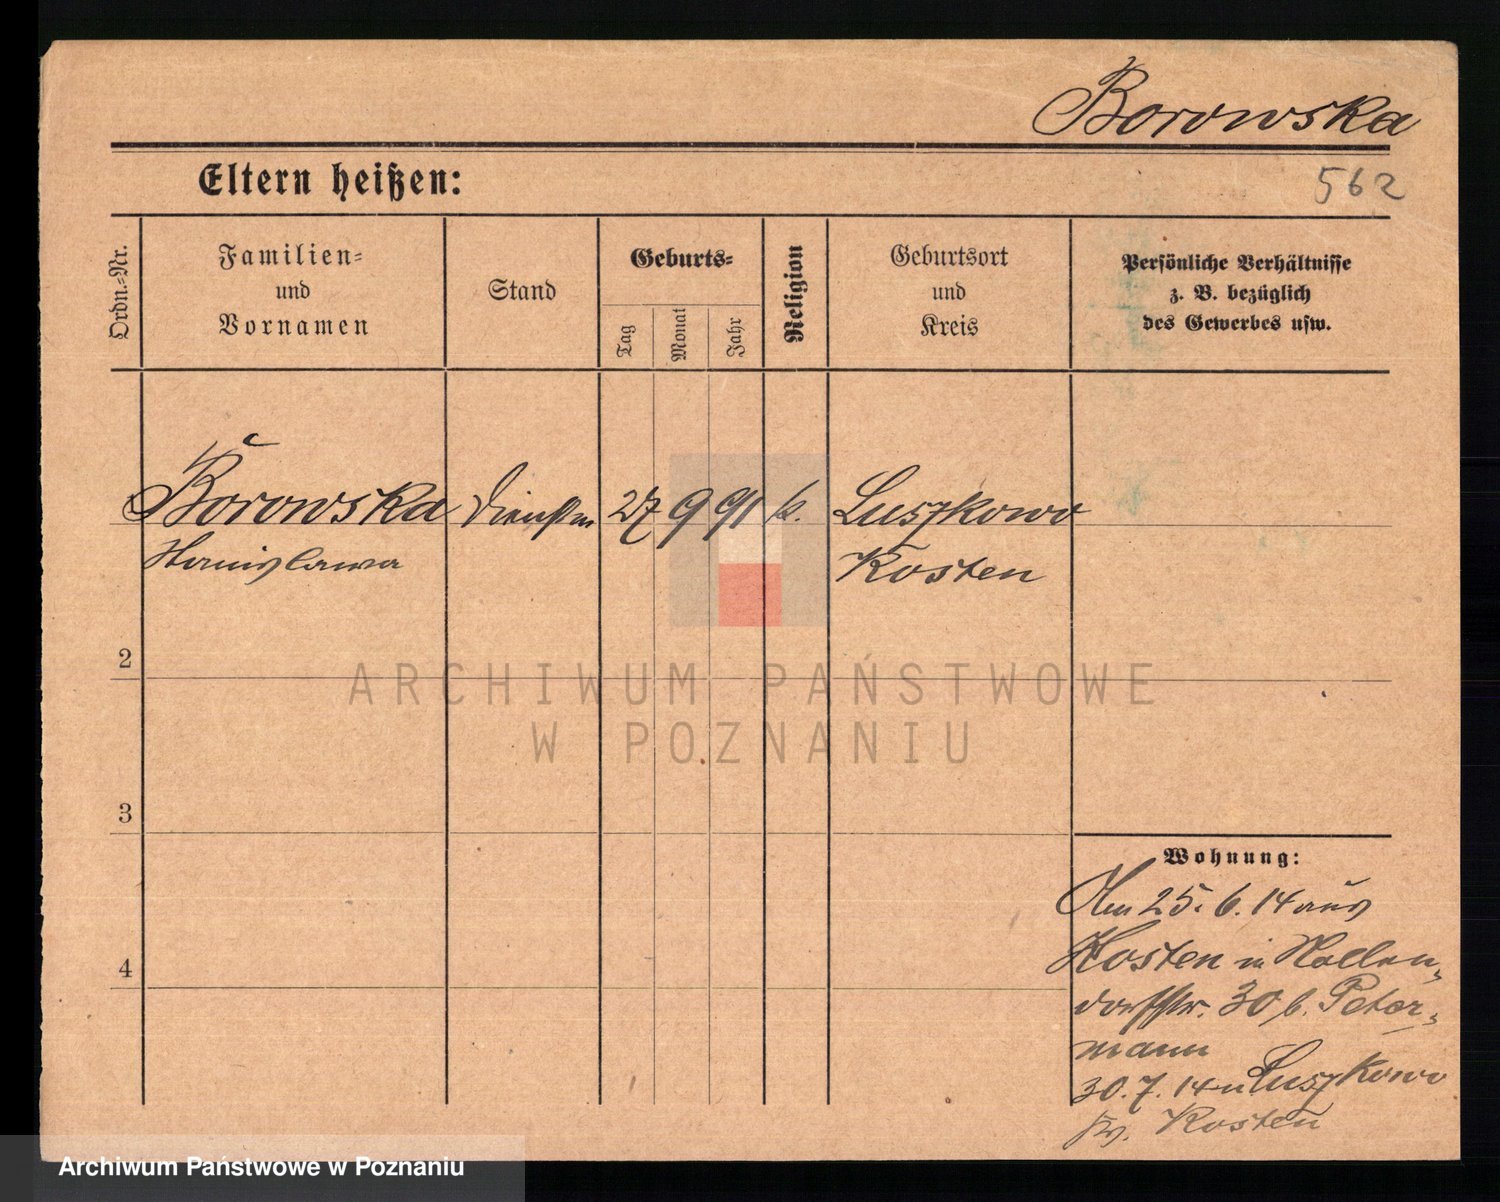 Borowska
Eltern heißen:
562
Ordn.-Nr.
Familien-
und
Vornamen
Stand
Geburts-
Tag
Monat
Jahr
Religion
Geburtsort
und
Kreis
Persönliche Verhältnisse
z. B. bezüglich
des Gewerbes usw.
Borowska
27 9 91 k.
Luszkowo
Stanislawa
Kosten
2
ARCHIWUM PAŃSTWOWE
W POZNANIU
3
Wohnung:
Am 25. 6. 14 aus
4
Kosten in Nollen-
dorfstr. 30 b. Peter-
mann
30. 7. 14 n Luszkowo
Kosten
Archiwum Państwowe w Poznaniu